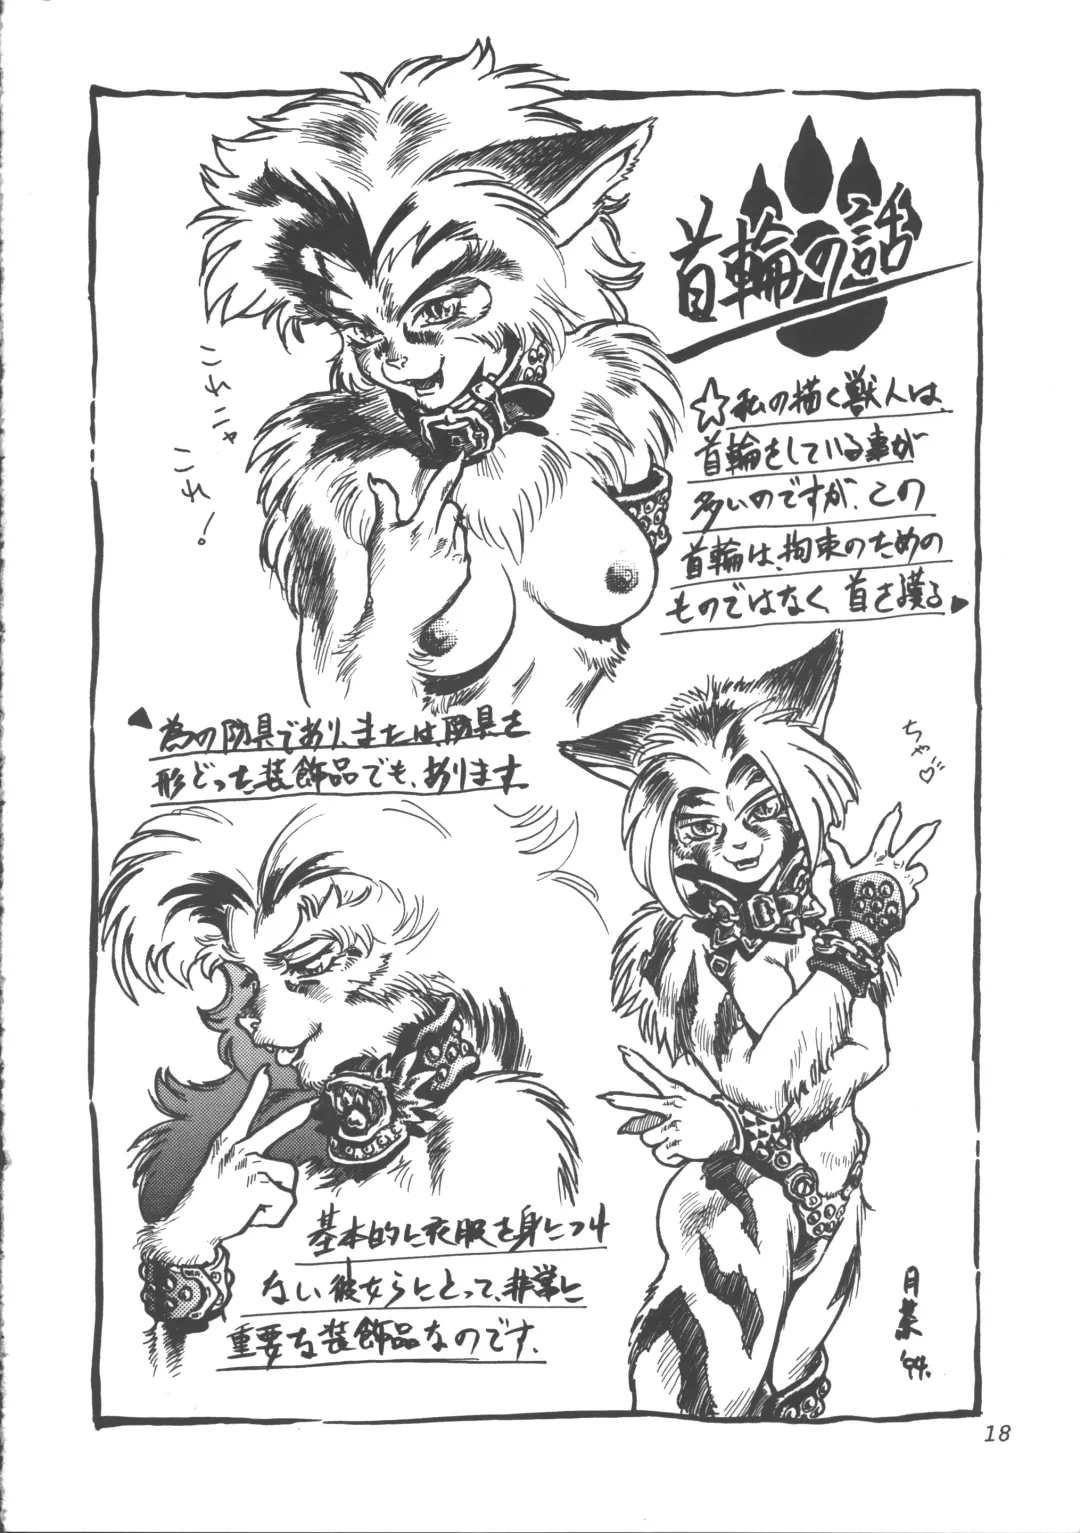 首輪の話
☆私の描く獣人は、
首輪をしている事が
多いのですが、この
首輪は、拘束のための
ものではなく、首を護る
為の防具であり、または、防具を
形どった装飾品でも、あります。
ニャニャ
ニャ!
ちゃ♡
基本的に衣服を身につけ
ない彼女らにとって、非常に
重要な装飾品なのです。
月菜 '94.
18